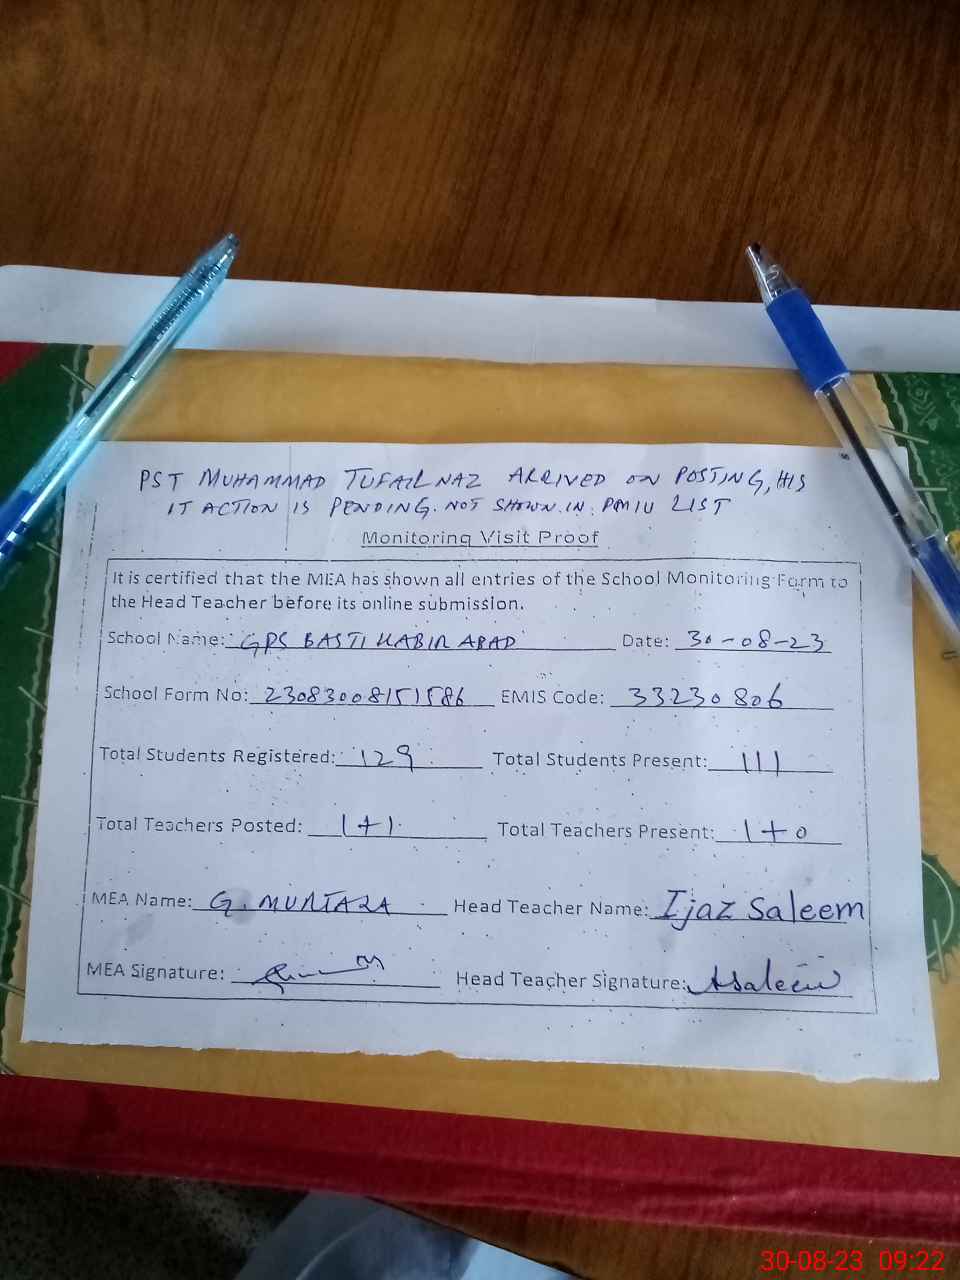 PST MUHAMMAD TUFAIL NAZ ARRIVED ON POSTING, HIS
IT ACTION IS PENDING. NOT SHOWN IN PMIU LIST
Monitoring Visit Proof
It is certified that the MEA has shown all entries of the School Monitoring Form to
the Head Teacher before its online submission.
School Name: GPS BASTI KABIR ABAD Date: 30-08-23
School Form No: 23083008151586 EMIS Code: 33230806
Total Students Registered: 129 Total Students Present: 111
Total Teachers Posted: 1+1 Total Teachers Present: 1+0
MEA Name: G. MURTAZA Head Teacher Name: Ijaz Saleem
MEA Signature: Head Teacher Signature: Asaleem
30-08-23 09:22